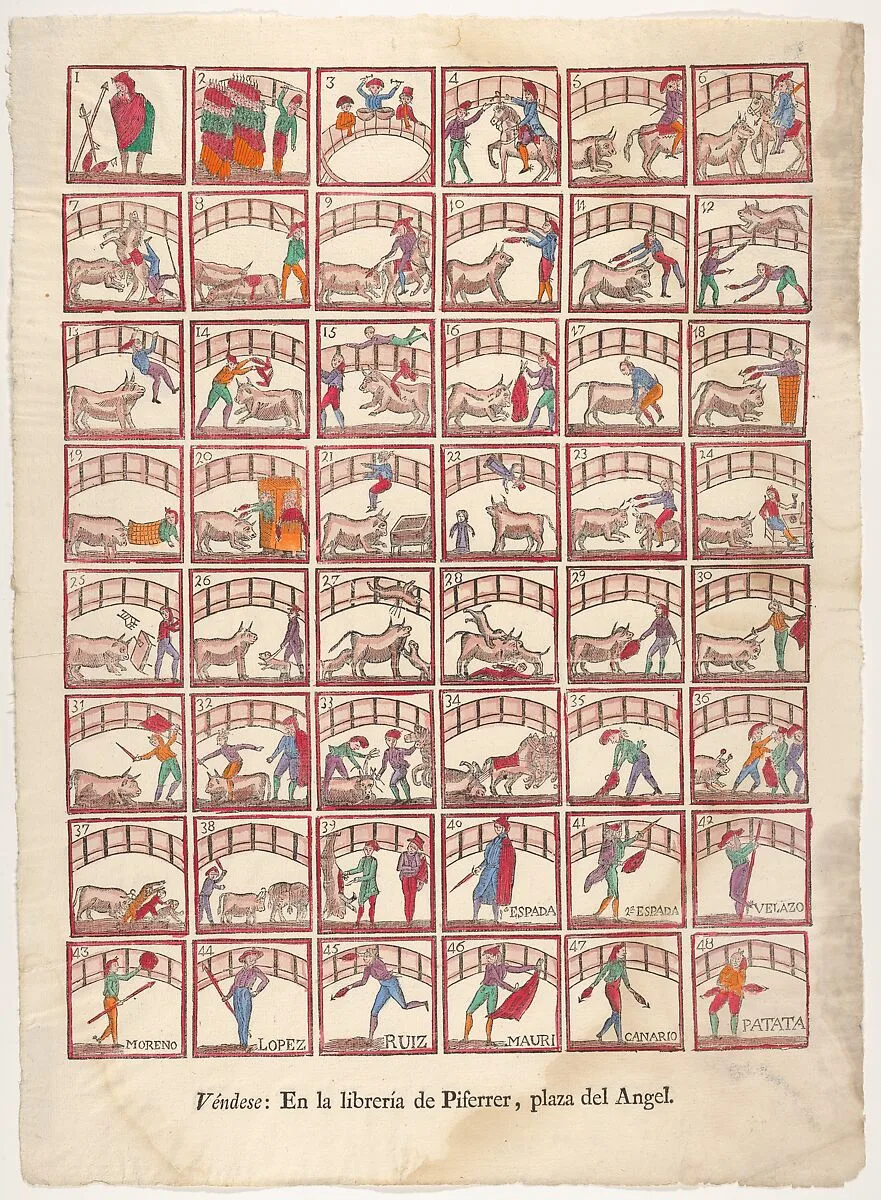 1
2
3
4
5
6
7
8
9
10
11
12
13
14
15
16
17
18
19
20
21
22
23
24
25
26
27
28
29
30
31
32
33
34
35
36
37
38
39
40
1ª ESPADA
41
2ª ESPADA
42
VELAZO
43
MORENO
44
LOPEZ
45
RUIZ
46
MAURI
47
CANARIO
48
PATATA
Véndese: En la librería de Piferrer, plaza del Angel.